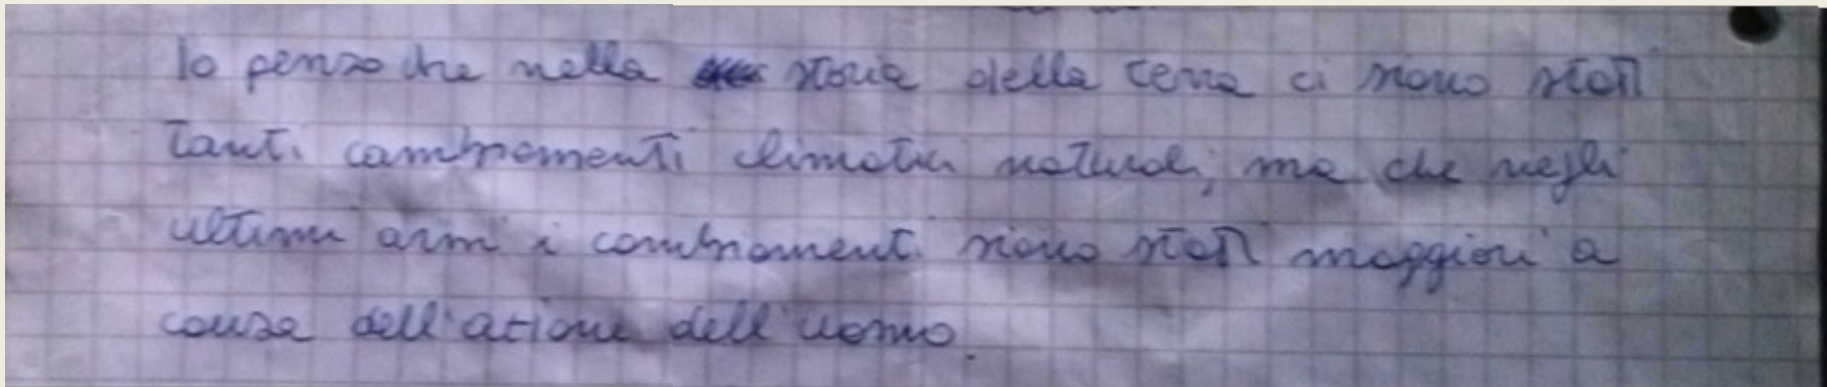 Io penso che nella storia della terra ci siano stati
tanti cambiamenti climatici naturali, ma che negli
ultimi anni i cambiamenti siano stati maggiori a
causa dell'azione dell'uomo.